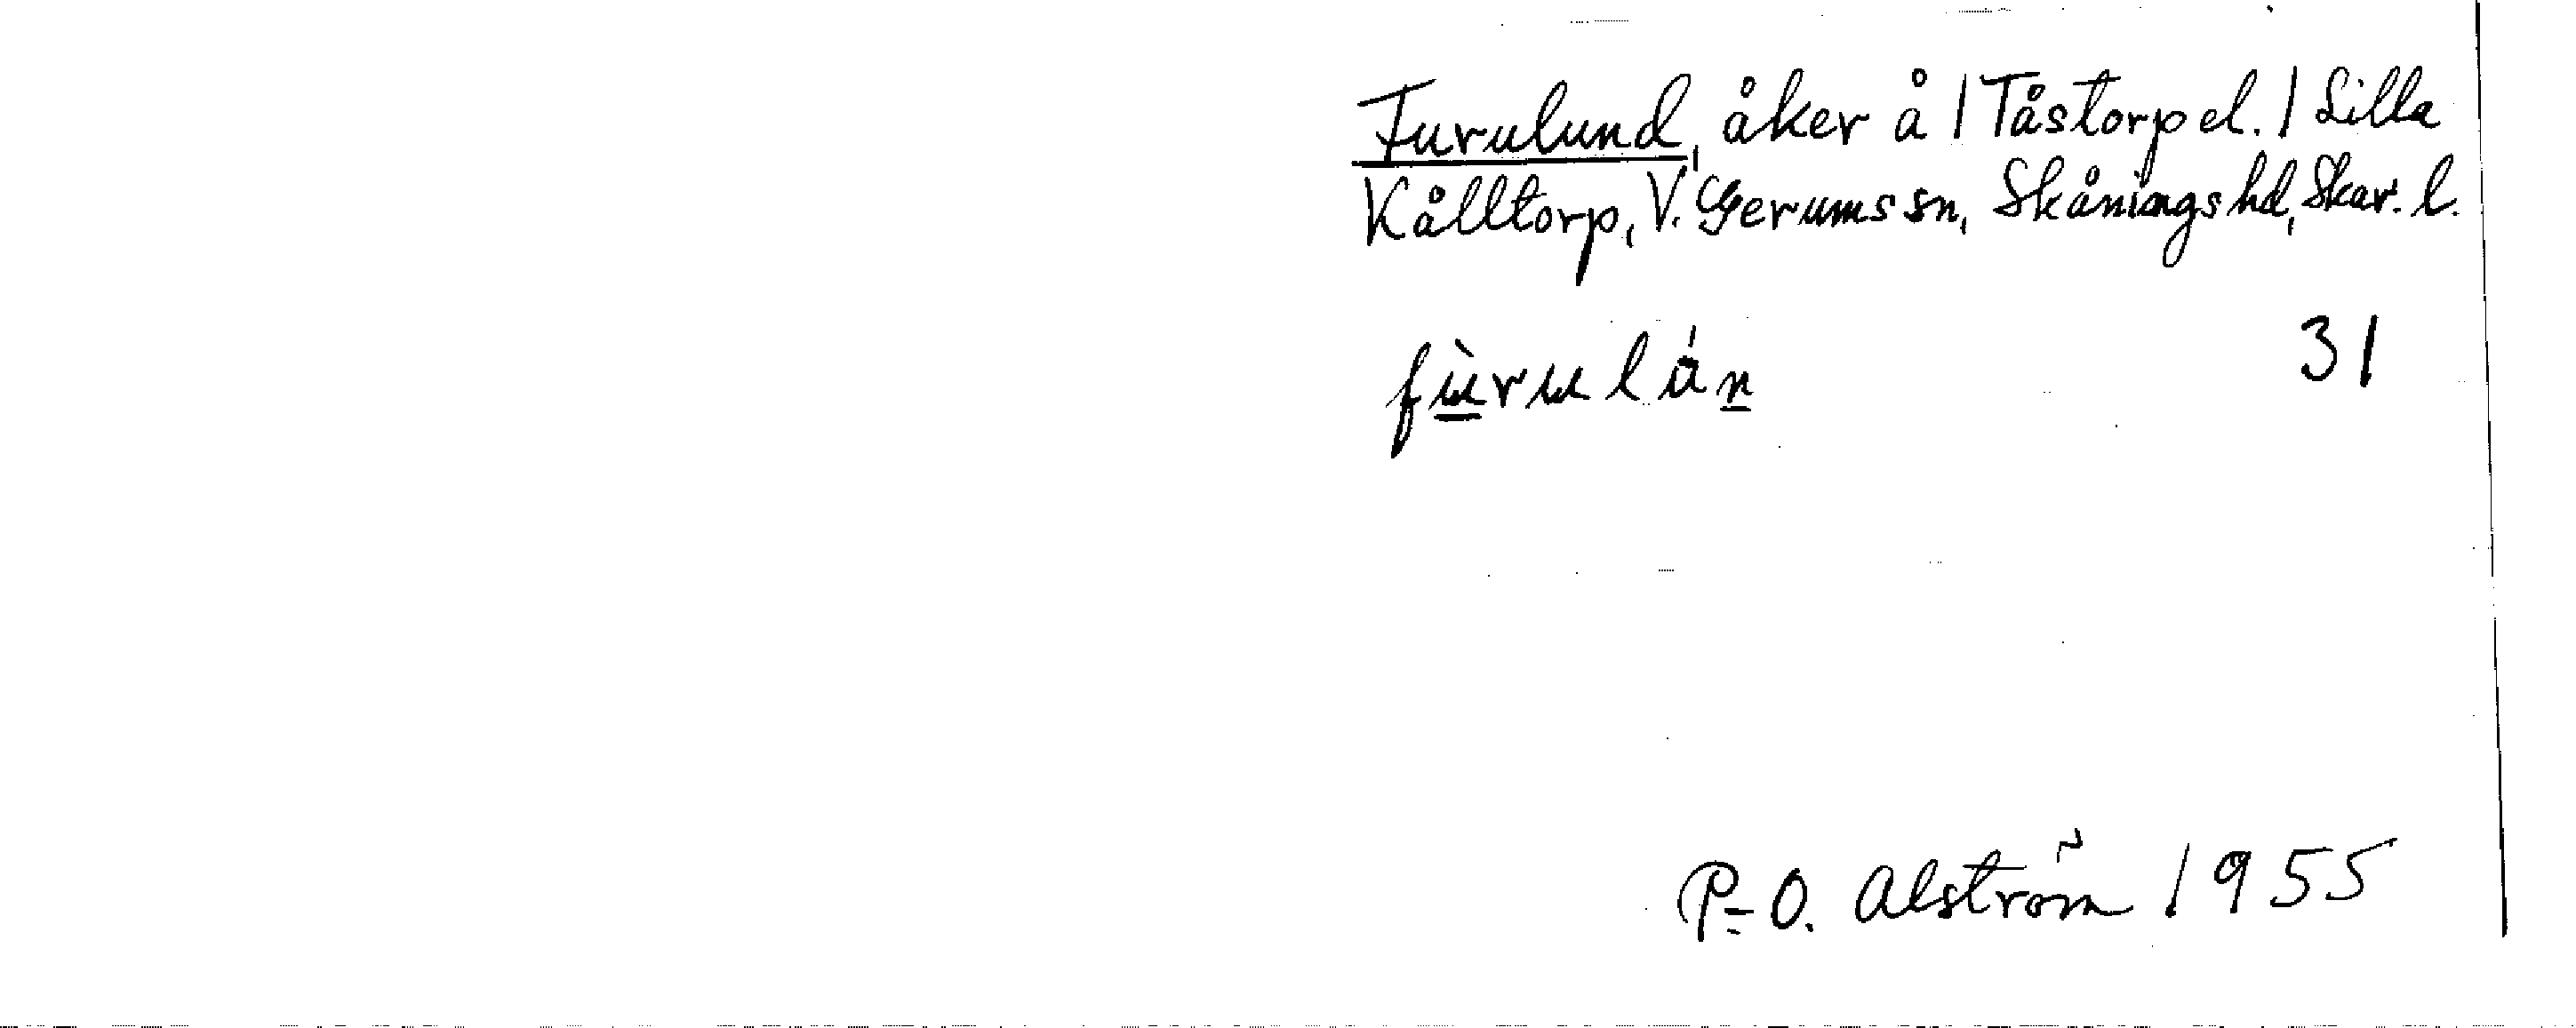 Furulund, åker å / Tåstorp el. / Lilla
Kålltorp, V. Gerums sn, Skånings hd, Skar. l.
fùrulán 31
P-O. Alström 1955